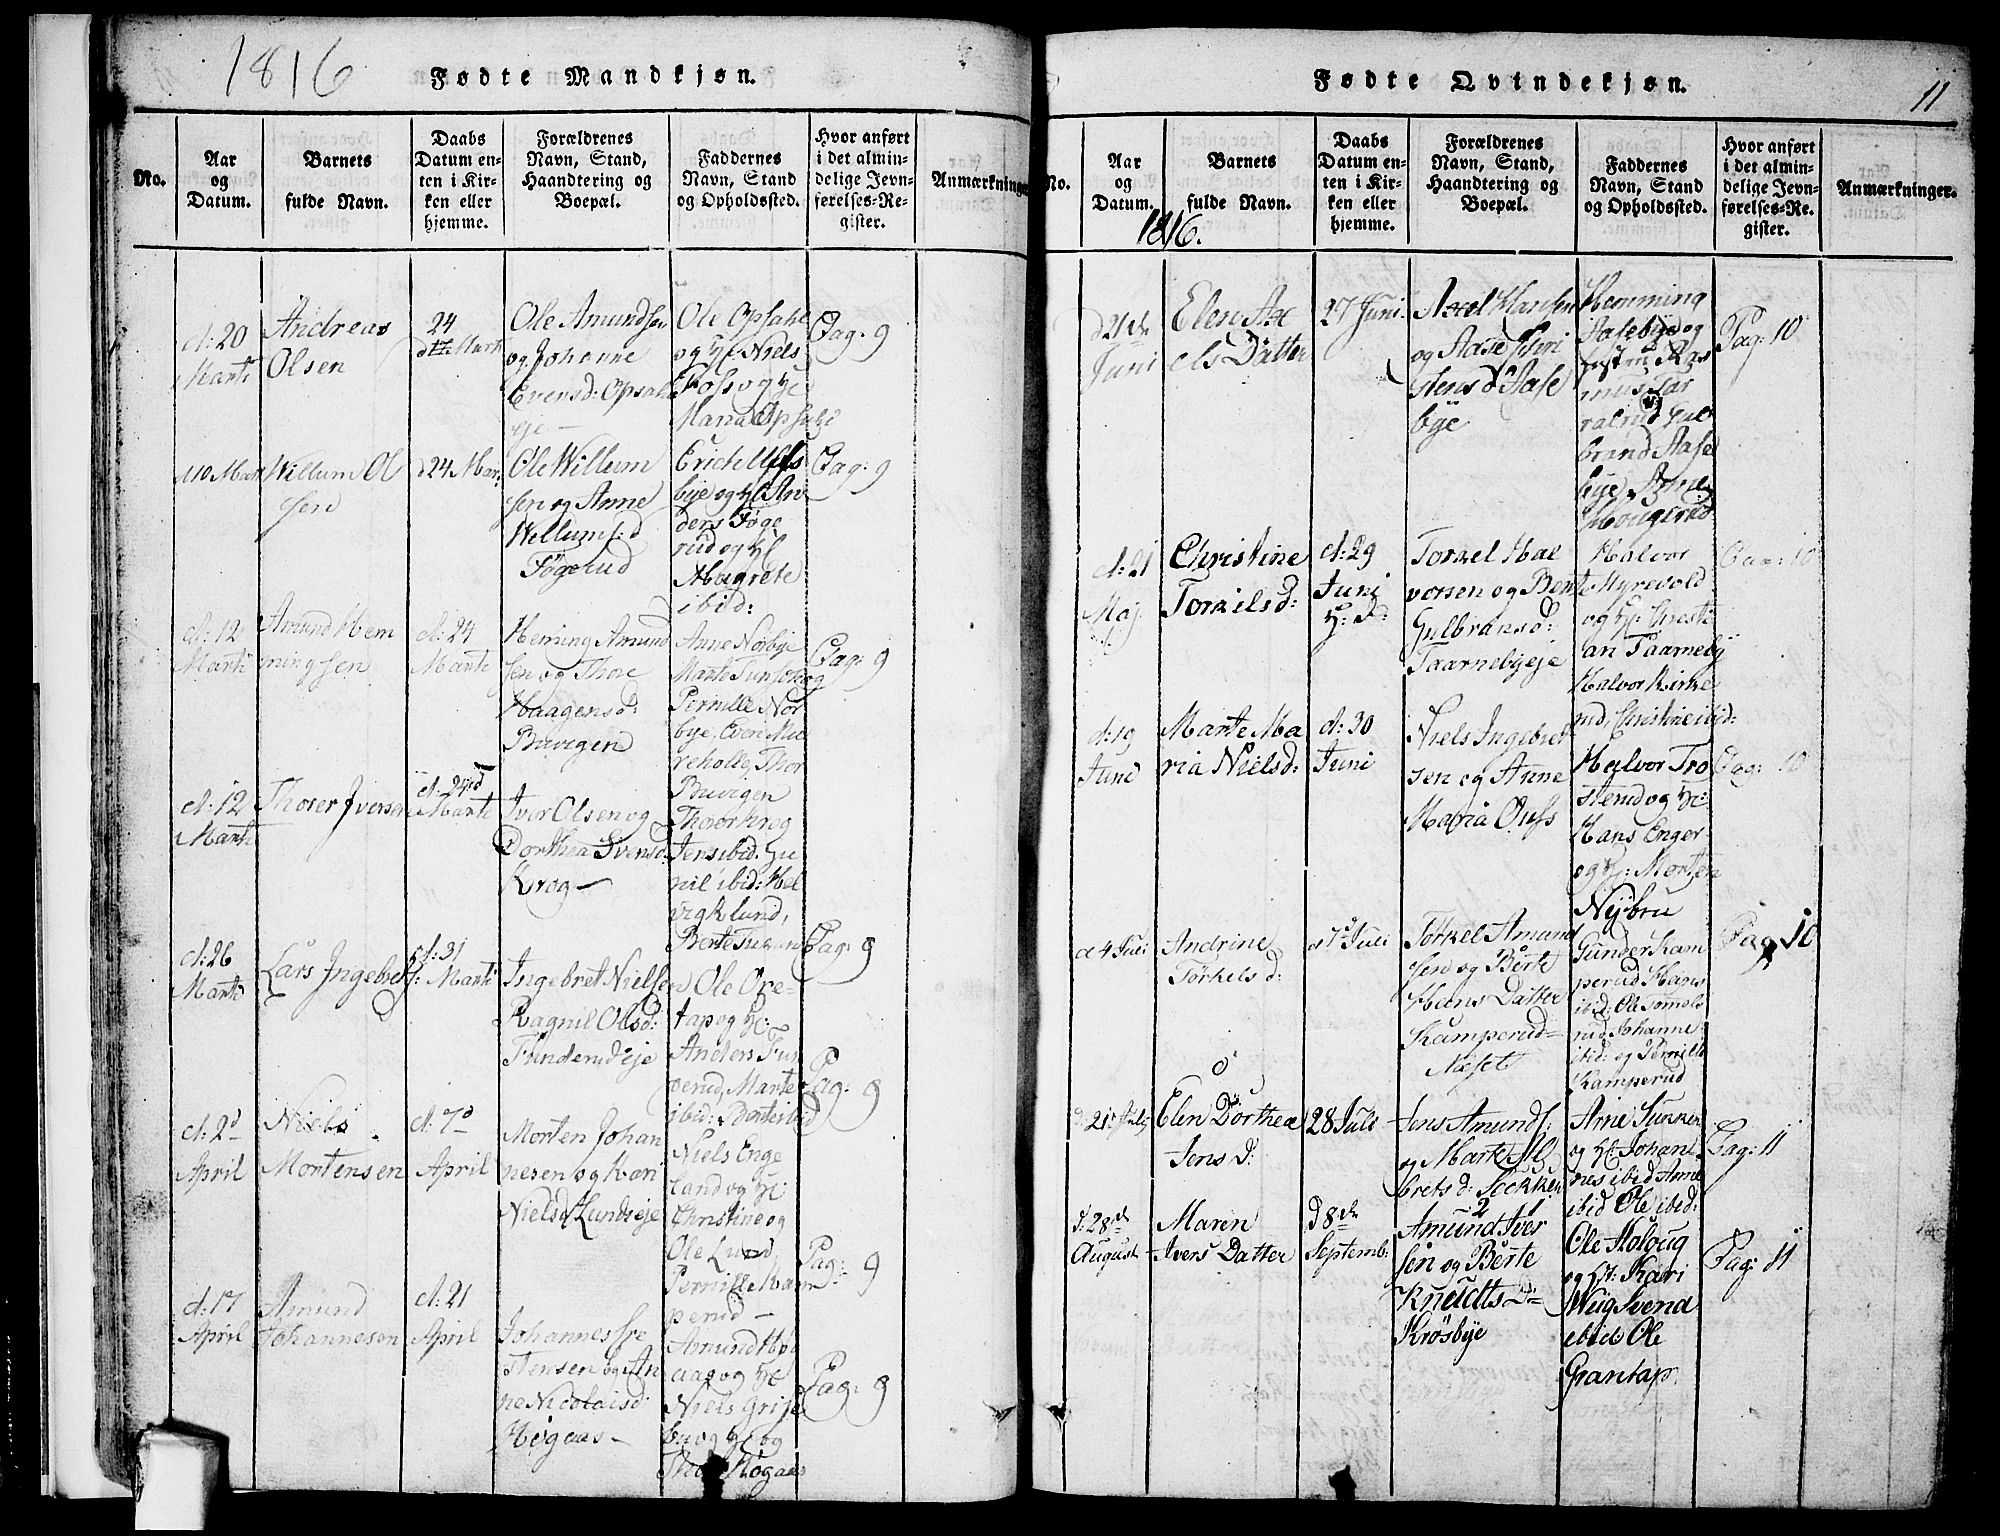 1816
Fødte Mandkjøn.
No.
Aar
og
Datum.
Barnets
fulde Navn.
Daabs
Datum en-
ten i Kir-
ken eller
hjemme.
Forældrenes
Navn, Stand,
Haandtering og
Boepæl.
Faddernes
Navn, Stand
og Opholdssted.
Hvor anført
i det almin-
delige Jevn-
førelses-Re-
gister.
Anmærkninger
d: 20
Marti
Andreas
Olsen
24
Ole Amundsen
og Johanne
Evensd: Opsahl
eje
Ole Opsahl
og H Niels
Foss og H
Maria Opsahl
Pag: 9
Willum Ol
sen
d 24 Mar:
Ole Willum
sen og Anne
Willums:d
Føgerud
Erich
bye og H An
ders Føge
rud og H
Magrete
ibid:
Pag: 9
d: 12
Marti
Amund Hem
mingsen
d: 24
Marti
Heming Amund
sen og Thore
Haagensd:
Buvigen
Anne Norbye
Marte
Pernille Nor
bye, Even
Thor
Buvigen
Pag: 9
d: 12
Marti
Thorer Iversen
Marti
Iver Olsen og
Dorthea Svensd
Krog
Thorer Krog
Jens ibid: Gu
nil ibid: Hel
vig Klund,
Berte
Pag: 9
d: 26
Marti
Lars Ingebret
d: 31
Marti
Ingebret Nielsen
Ragnil Olsd:
Funderud eje
Ole Ore-
tap og H:
Anders Fun
derud, Marte
ibid: Dorte ibid
Pag:
9
d: 2d
April
Niels
Mortensen
d: 7d
April
Morten Johan
nesen og Kari
Nielsd Lundseje
Niels Enge
land og H:
Christine og
Ole Lund
Pernille Kam
perud
Pag:
9
d: 17
April
Amund
Johannesen
d: 21
April
Johannes
stensen og An
ne Nicolaisd:
Høgaas
Amund Høg
aas og H
Niels Grise
bu og H og
Thor Høgaas
Pag: 9
Fødte Qvindekjøn.
11
No.
Aar
og
Datum.
Barnets
fulde Navn.
Daabs
Datum en-
ten i Kir-
ken eller
hjemme.
Forældrenes
Navn, Stand,
Haandtering og
Boepæl.
Faddernes
Navn, Stand
og Opholdssted.
Hvor anført
i det almin-
delige Jevn-
førelses-Re-
gister.
Anmærkninger.
1816.
d 21de
Juni
Elen Ax
els Datter
27 Juni
Axel Hansen
og Aase Chri
stens d Aase
bye
Hemming
Aasebye og
Ras
mus
Gul
brand Aase
bye, Anne
Hougerud
Pag: 10
d: 21
Maj
Christine
Torkilsd:
d: 29
Juni
H: D:
Torkel Hal
vorsen og Bent
Gulbransd:
Taarnebyeje
Halvor
Myrevold
og H: Christi
an Taarneby
Halvor Kirke
rud, Christine ibid:
Pag: 10
d: 19
Juni
Marte Ma
ria Nielsd:
d: 30
Juni
Niels Ingebret
sen og Anne
Maria
Halvor Tro
sterud og H:
Hans Enger
og H: Morten
Nybru
Pag: 10
d 4 Juli
Andrine
Torkels d:
d 7 Juli
Torkel Amund
sen og Berte
Hans Datter
Kamperud-
Næset
Gunder Kam
perud Hans
ibid: Ole
rud Johanne
ibid: og Pernille
Kamperud
Pag 10
21 July
Elen Dorthea
Jens d:
28 Juli
Jens Amunds:
og Marte
brets d: Søkken
Arne Sukken
og H: Johan
nes ibid Anne
ibid Ole ibid:
Pag: 11
d: 28de
August
Maren
Ivers Datter
D 8de
Septemb:
Amund Iver
sen og Berte
Knudtts D
Krøsbye
Ole Holoug
og H: Kari
Wug Svend
ibid Ole
Grantap
Pag: 11